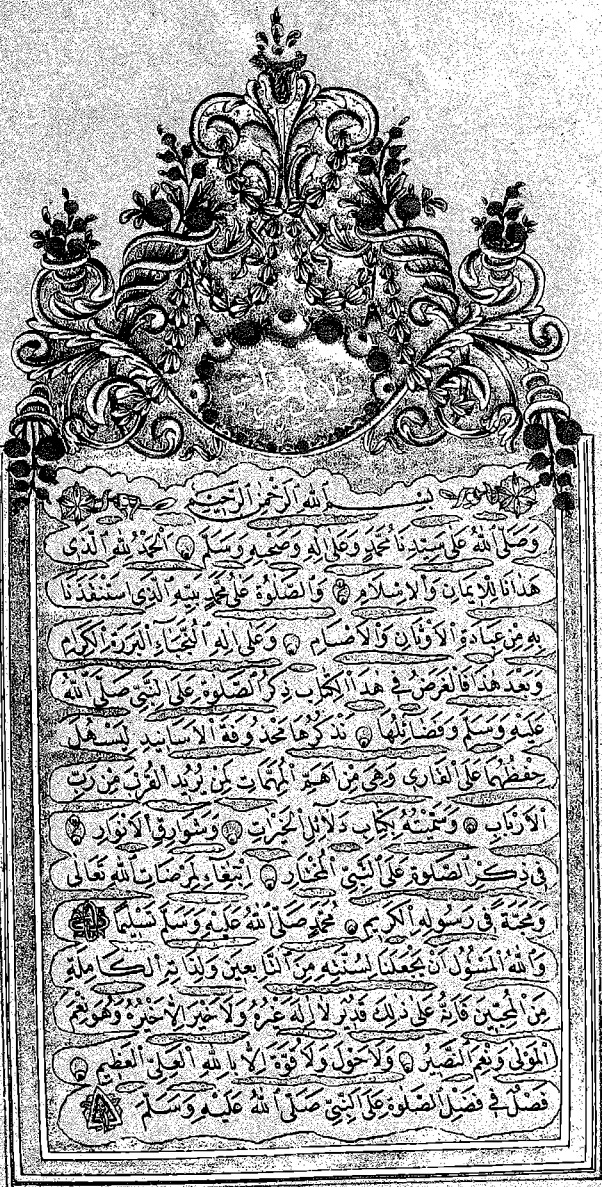 دلائل الخيرات شريف
بسم الله الرحمن الرحيم
وَصَلَّى اللهُ عَلَى سَيِّدِنَا مُحَمَّدٍ وَعَلَى اٰلِهِ وَصَحْبِهِ وَسَلَّمَ اَلْحَمْدُ لِلّٰهِ الَّذِى
هَدَانَا لِلْاِيمَانِ وَالْاِسْلَامِ وَالصَّلٰوةُ عَلَى مُحَمَّدٍ نَبِيِّهِ الَّذِى اسْتَنْقَذَنَا
بِهِ مِنْ عِبَادَةِ الْاَوْثَانِ وَالْاَصْنَامِ وَعَلَى اٰلِهِ النُّجَبَاءِ الْبَرَرَةِ الْكِرَامِ
وَبَعْدَ هٰذَا فَالْغَرَضُ فِى هٰذَا الْكِتَابِ ذِكْرُ الصَّلٰوةِ عَلَى النَّبِىِّ صَلَّى اللهُ
عَلَيْهِ وَسَلَّمَ وَفَضَائِلُهَا نَذْكُرُهَا مَحْذُوفَةَ الْاَسَانِيدِ لِيَسْهُلَ
حِفْظُهَا عَلَى الْقَارِى وَهِىَ مِنْ اَهَمِّ الْمُهِمَّاتِ لِمَنْ يُرِيدُ الْقُرْبَ مِنْ رَبِّ
الْاَرْبَابِ وَسَمَّيْتُهُ بِكِتَابِ دَلَائِلِ الْخَيْرَاتِ وَشَوَارِقِ الْاَنْوَارِ
فِى ذِكْرِ الصَّلٰوةِ عَلَى النَّبِىِّ الْمُخْتَارِ اِبْتِغَاءً لِمَرْضَاتِ اللهِ تَعَالٰى
وَمَحَبَّةً فِى رَسُولِهِ الْكَرِيمِ مُحَمَّدٍ صَلَّى اللهُ عَلَيْهِ وَسَلَّمَ تَسْلِيمًا
وَاللهُ الْمَسْؤُلُ اَنْ يَجْعَلَنَا لِسُنَّتِهِ مِنَ التَّابِعِينَ وَلِذَاتِهِ الْكَامِلَةِ
مِنَ الْمُحِبِّينَ فَاِنَّهُ عَلَى ذٰلِكَ قَدِيرٌ لَا اِلٰهَ غَيْرُهُ وَلَا خَيْرَ اِلَّا خَيْرُهُ وَهُوَ نِعْمَ
الْمَوْلَى وَنِعْمَ النَّصِيرُ وَلَا حَوْلَ وَلَا قُوَّةَ اِلَّا بِاللهِ الْعَلِىِّ الْعَظِيمِ
فَصْلٌ فِى فَضْلِ الصَّلٰوةِ عَلَى النَّبِىِّ صَلَّى اللهُ عَلَيْهِ وَسَلَّمَ